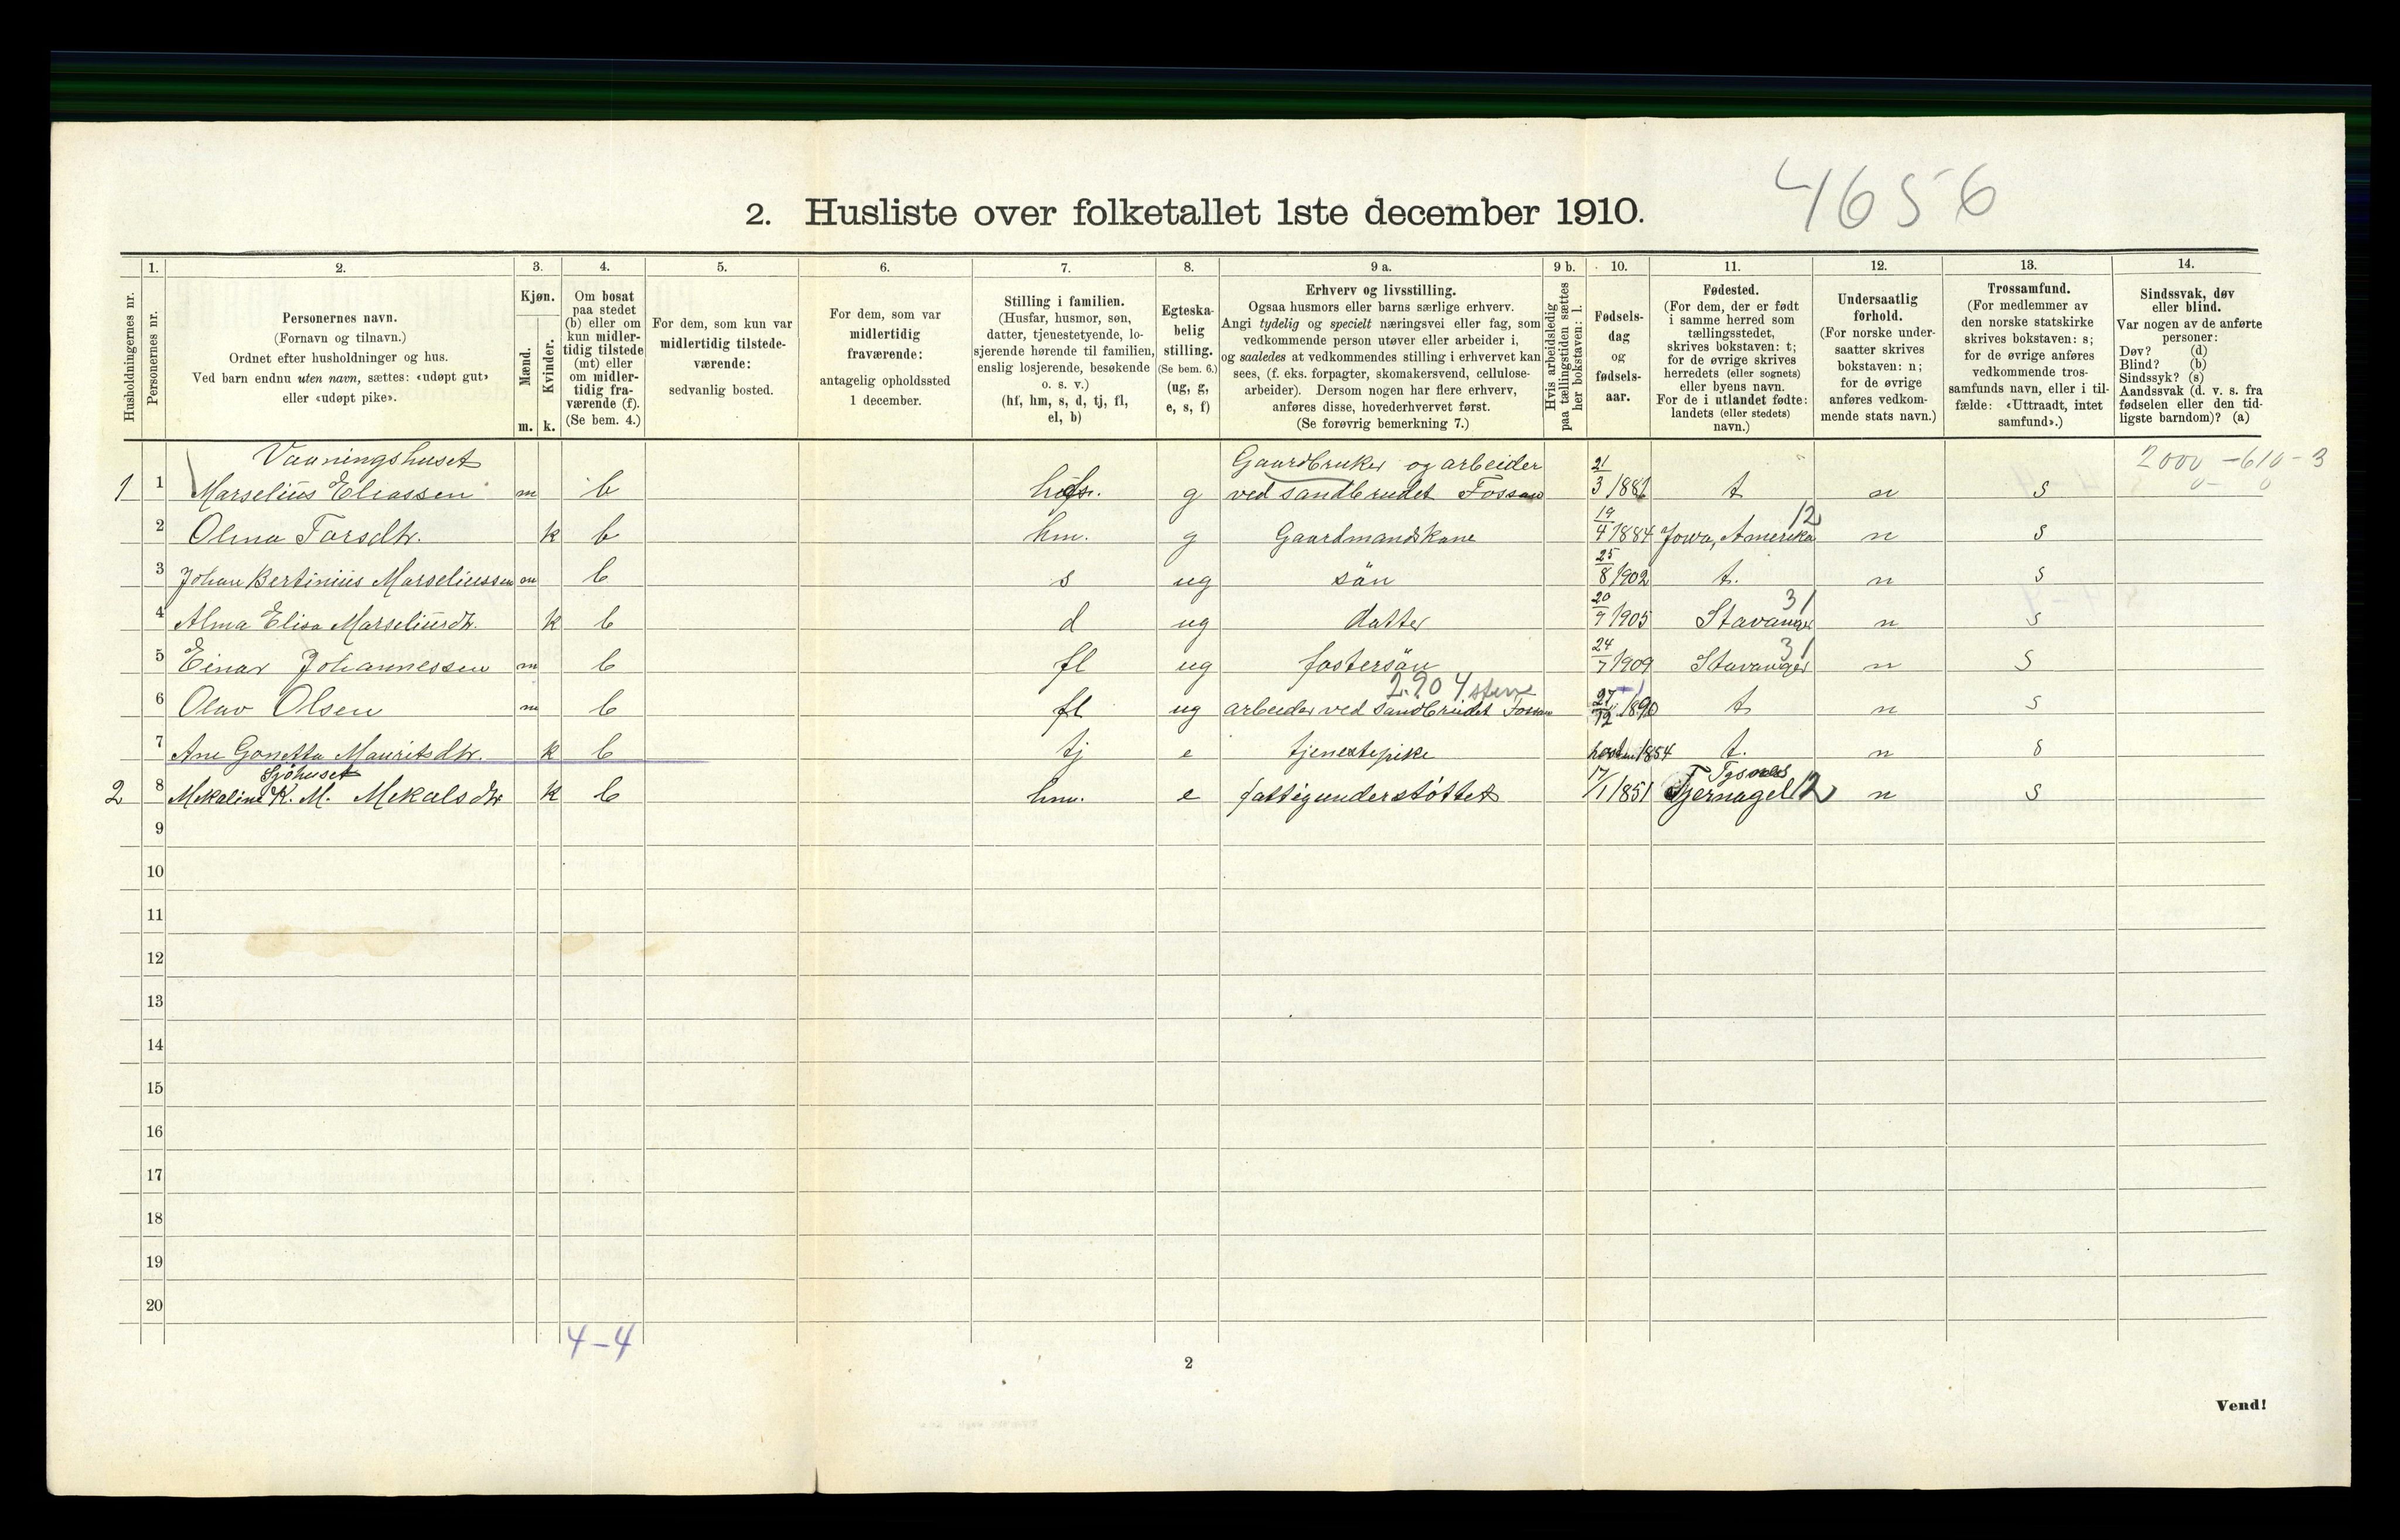 4656
2. Husliste over folketallet 1ste december 1910.
Husholdningernes nr.
1. Personernes nr.
2. Personernes navn.
(Fornavn og tilnavn.)
Ordnet efter husholdninger og hus.
Ved barn endnu uten navn, sættes: «udøpt gut»
eller «udøpt pike».
3. Kjøn.
Mænd. m.
Kvinder. k.
4. Om bosat
paa stedet
(b) eller om
kun midler-
tidig tilstede
(mt) eller
om midler-
tidig fra-
værende (f).
(Se bem. 4.)
5. For dem, som kun var
midlertidig tilstede-
værende:
sedvanlig bosted.
6. For dem, som var
midlertidig
fraværende:
antagelig opholdssted
1 december.
7. Stilling i familien.
(Husfar, husmor, søn,
datter, tjenestetyende, lo-
sjerende hørende til familien,
enslig losjerende, besøkende
o. s. v.)
(hf, hm, s, d, tj, fl,
el, b)
8. Egteska-
belig
stilling.
(Se bem. 6.)
(ug, g,
e, s, f)
9 a. Erhverv og livsstilling.
Ogsaa husmors eller barns særlige erhverv.
Angi tydelig og specielt næringsvei eller fag, som
vedkommende person utøver eller arbeider i,
og saaledes at vedkommendes stilling i erhvervet kan
sees, (f. eks. forpagter, skomakersvend, cellulose-
arbeider). Dersom nogen har flere erhverv,
anføres disse, hovederhvervet først.
(Se forøvrig bemerkning 7.)
9 b. Hvis arbeidsledig
paa tællingstiden sættes
her bokstaven: l.
10. Fødsels-
dag
og
fødsels-
aar.
11. Fødested.
(For dem, der er født
i samme herred som
tællingsstedet,
skrives bokstaven: t;
for de øvrige skrives
herredets (eller sognets)
eller byens navn.
For de i utlandet fødte:
landets (eller stedets)
navn.)
12. Undersaatlig
forhold.
(For norske under-
saatter skrives
bokstaven: n;
for de øvrige
anføres vedkom-
mende stats navn.)
13. Trossamfund.
(For medlemmer av
den norske statskirke
skrives bokstaven: s;
for de øvrige anføres
vedkommende tros-
samfunds navn, eller i til-
fælde: «Uttraadt, intet
samfund».)
14. Sindssvak, døv
eller blind.
Var nogen av de anførte
personer:
Døv? (d)
Blind? (b)
Sindssyk? (s)
Aandssvak (d. v. s. fra
fødselen eller den tid-
ligste barndom)? (a)
Vaaningshuset Gaardbruker og arbeider 2000 - 610 - 3
1 1 Marselius Eliassen m b g ved sandbrudet Fossan 21/3 1881 t n s
2 Olina Tarsdtr. k b hm. g Gaardmandskone 19/4 1884 Jowa, Amerika 12 n s
3 Johan Bertinius Marseliussen m b s ug søn 25/8 1902 t. n s
4 Alma Elisa Marseliusdtr. k b d ug datter 20/9 1905 Stavanger 31 n s
5 Einar Johannessen m b fl ug fostersøn 24/7 1909 Stavanger 31 n s
2.90 4
6 Olav Olsen m b fl ug arbeider ved sandbrudet Fossan 27/12 1890 t n s
7 Ane Gonetta Mauritsdtr. k b tj e tjenestepike 1854 t. n s
Sjøhuset Tysnes
2 8 Mekaline K. M. Mekalsdtr k b hm. e fattigunderstøttet 17/1 1851 Tjernagel 12 n s
9
10
11
12
13
14
15
16
17
18
19
20
4-4
2
Vend!